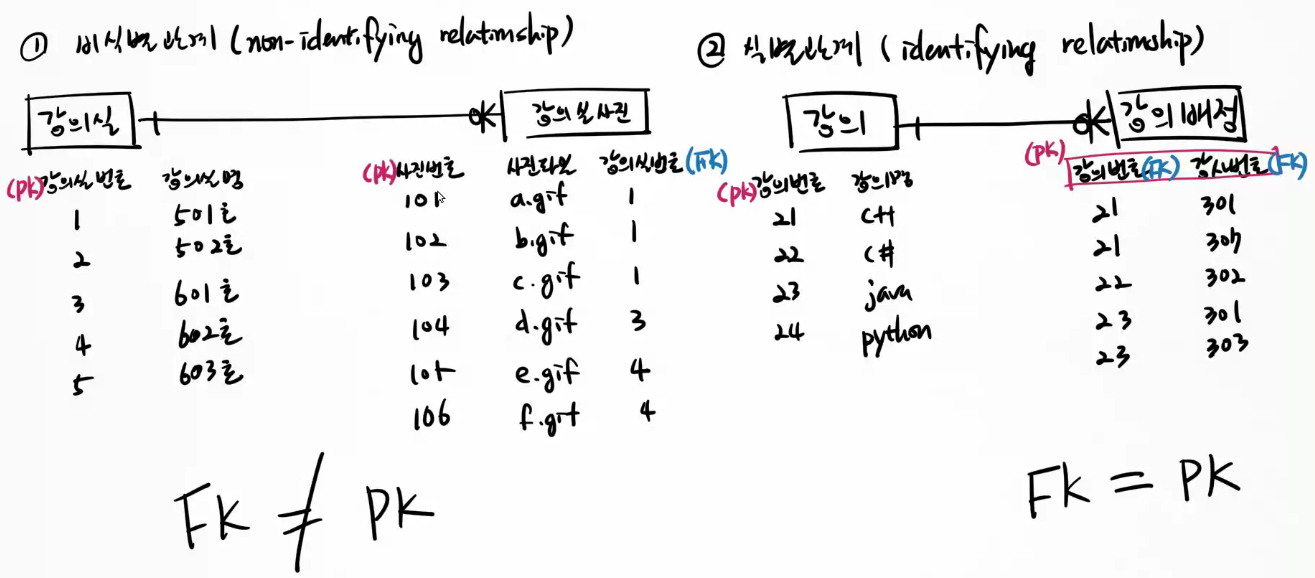 ① 비식별관계 (non-identifying relationship)
강의실
강의실사진
(PK) 강의실 번호 강의실 명
1 501호
2 502호
3 601호
4 602호
5 603호
(PK) 사진번호 사진파일 강의실번호 (FK)
101 a.gif 1
102 b.gif 1
103 c.gif 1
104 d.gif 3
105 e.gif 4
106 f.gif 4
FK ≠ PK
② 식별관계 (identifying relationship)
강의
강의배정
(PK) 강의번호 강의명
21 C++
22 C#
23 java
24 python
(PK)
강의번호 (FK) 강사번호 (FK)
21 301
21
22 302
23 301
23 303
FK = PK